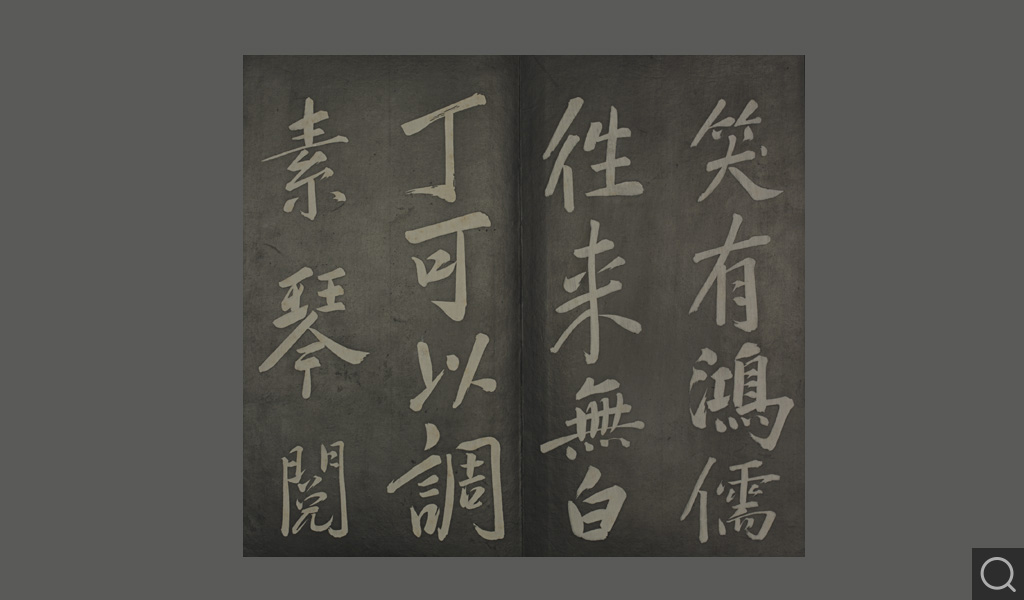 笑有鴻儒
往来無白
丁可以調
素琴閱